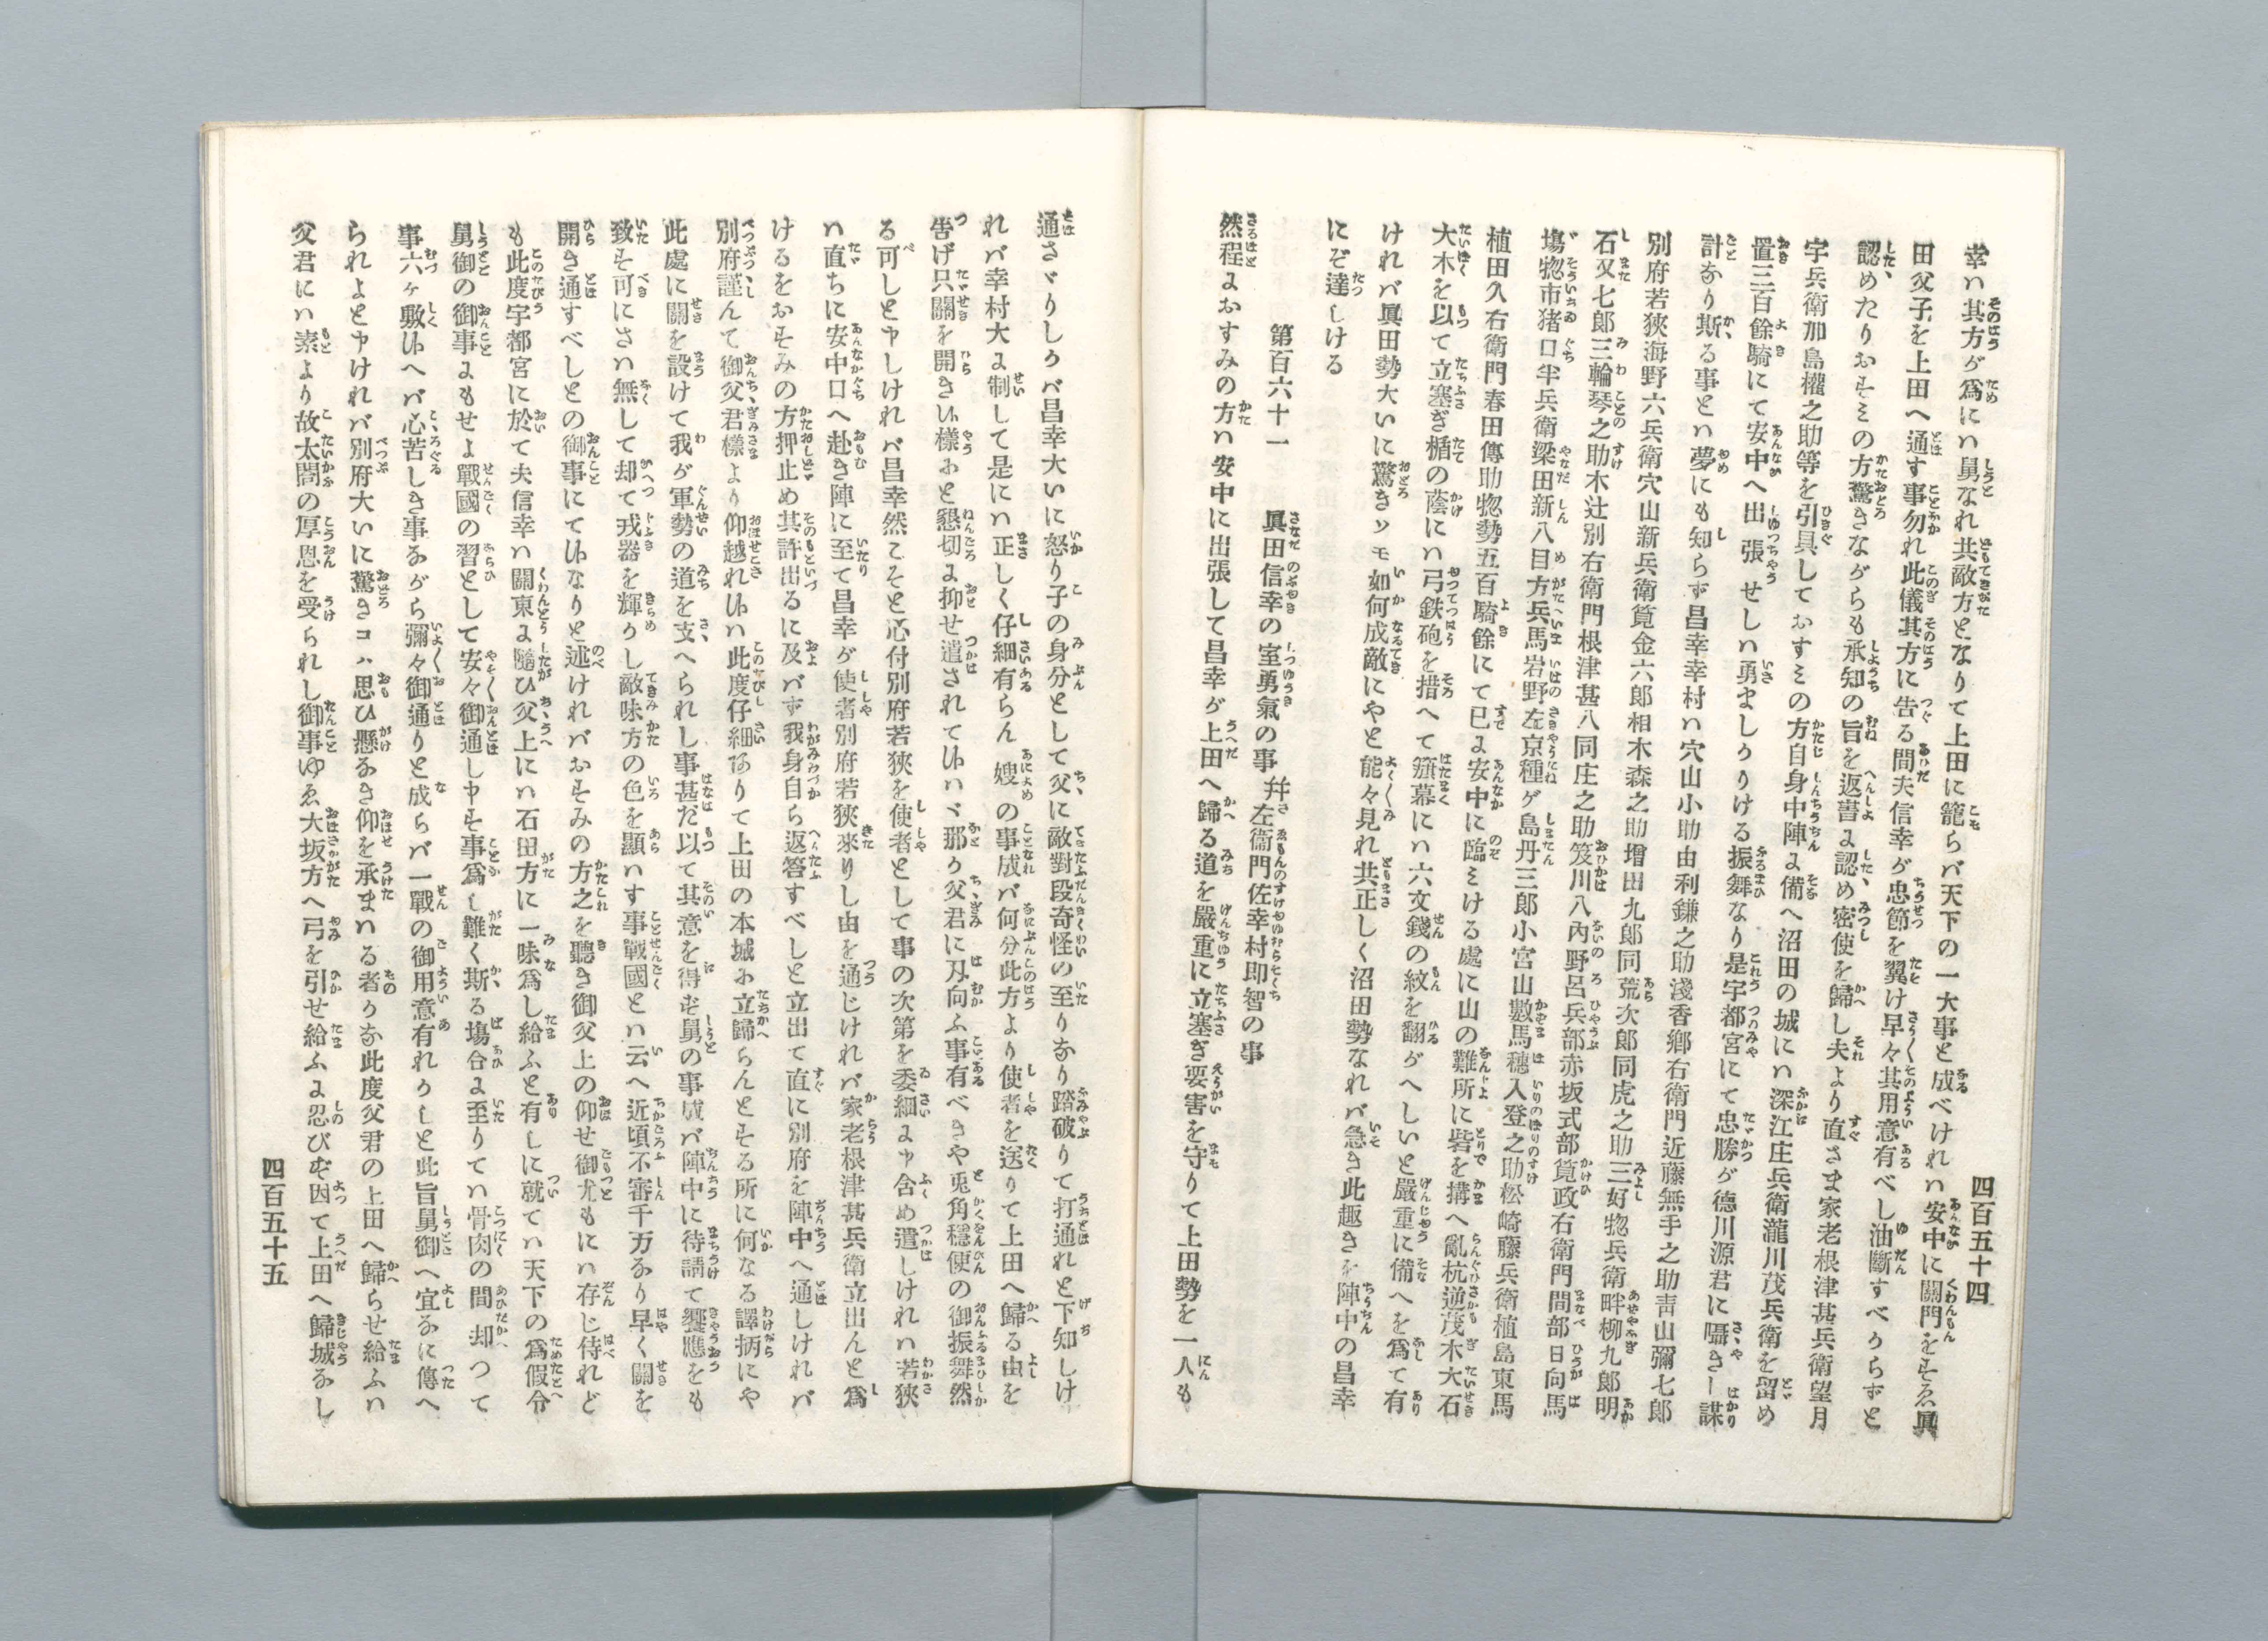 四百五十四
幸ハ其方が爲にハ舅なれ共敵方となりて上田に籠らバ天下の一大事と成べけれハ安中に關門をすゑ眞
田父子を上田へ通す事勿れ此儀其方に告る間夫信幸が忠節を翼け早々其用意有べし油斷すべからずと
認めたりおすミの方驚きながらも承知の旨を返書に認め密使を歸し夫より直さま家老根津甚兵衛望月
宇兵衛加島權之助等を引具しておすミの方自身中陣に備へ沼田の城にハ深江庄兵衛瀧川茂兵衛を留め
置三百餘騎にて安中へ出張せしハ勇ましかりける振舞なり是宇都宮にて忠勝が德川源君に囁きし謀
計なり斯る事とハ夢にも知らず昌幸幸村ハ穴山小助由利鎌之助淺香郷右衛門近藤無手之助靑山彌七郎
別府若狹海野六兵衛穴山新兵衛筧金六郎相木森之助增田九郎同荒次郎同虎之助三好惣兵衛畔柳九郎明
石又七郎三輪琴之助木辻別右衛門根津甚八同庄之助笈川八內野呂兵部赤坂式部筧政右衛門間部日向馬
塲惣市猪口半兵衛梁田新八目方兵馬岩野左京種ゲ島丹三郎小宮山數馬穗入登之助松崎藤兵衛植島東馬
植田久右衛門春田傳助惣勢五百騎餘にて已に安中に臨ミける處に山の難所に砦を搆へ亂杭逆茂木大石
大木を以て立塞ぎ楯の蔭にハ弓鉄砲を揃へて籏幕にハ六文錢の紋を翻がへしいと嚴重に備へを爲て有
けれバ眞田勢大いに驚きソモ如何成敵にやと能々見れ共正しく沼田勢なれバ急き此趣きを陣中の昌幸
にぞ達しける
第百六十一　眞田信幸の室勇氣の事　幷左衛門佐幸村即智の事
然程におすみの方ハ安中に出張して昌幸が上田へ歸る道を嚴重に立塞ぎ要害を守りて上田勢を一人も
通さゞりしかバ昌幸大いに怒り子の身分として父に敵對段奇怪の至りなり踏破りて打通れと下知しけ
れバ幸村大に制して是にハ正しく仔細有らん嫂の事成バ何分此方より使者を送りて上田へ歸る由を
告げ只關を開き候樣にと懇切に抑せ遣はされて候ハヾ那か父君に刄向ふ事有べきや兎角穩便の御振舞然
る可しと申しけれバ昌幸然こそと心付別府若狹を使者として事の次第を委細に申含め遣しけれハ若狹
ハ直ちに安中口へ赴き陣に至て昌幸が使者別府若狹來りし由を通じけれバ家老根津甚兵衛立出んと爲
けるをおすみの方押止め其許出るに及バず我身自ら返答すべしと立出て直に別府を陣中へ通しけれバ
別府謹んて御父君樣より仰越れ候ハ此度仔細ありて上田の本城に立歸らんとする所に何なる譯柄にや
此處に關を設けて我が軍勢の道を支へられし事甚だ以て其意を得ず舅の事成バ陣中に待請て饗應をも
致す可にさハ無して却て戎器を輝かし敵味方の色を顯ハす事戰國とハ云へ近頃不審千万なり早く關を
開き通すべしとの御事にて候なりと述けれバおすみの方之を聽き御父上の仰せ御尤もにハ存じ侍れど
も此度宇都宮に於て夫信幸ハ關東に隨ひ父上にハ石田方に一味爲し給ふと有しに就てハ天下の爲假令
舅御の御事にもせよ戰國の習として安々御通し申す事爲し難く斯る塲合に至りてハ骨肉の間却つて
事六ヶ敷候へバ心苦しき事ながら彌々御通りと成らバ一戰の御用意有れかしと此旨舅御へ宜なに傳へ
られよと申けれバ別府大いに驚きコハ思ひ懸なき仰を承まハる者かな此度父君の上田へ歸らせ給ふハ
父君にハ素より故太閤の厚恩を受られし御事ゆゑ大坂方へ弓を引せ給ふに忍びず因て上田へ歸城なし
四百五十五